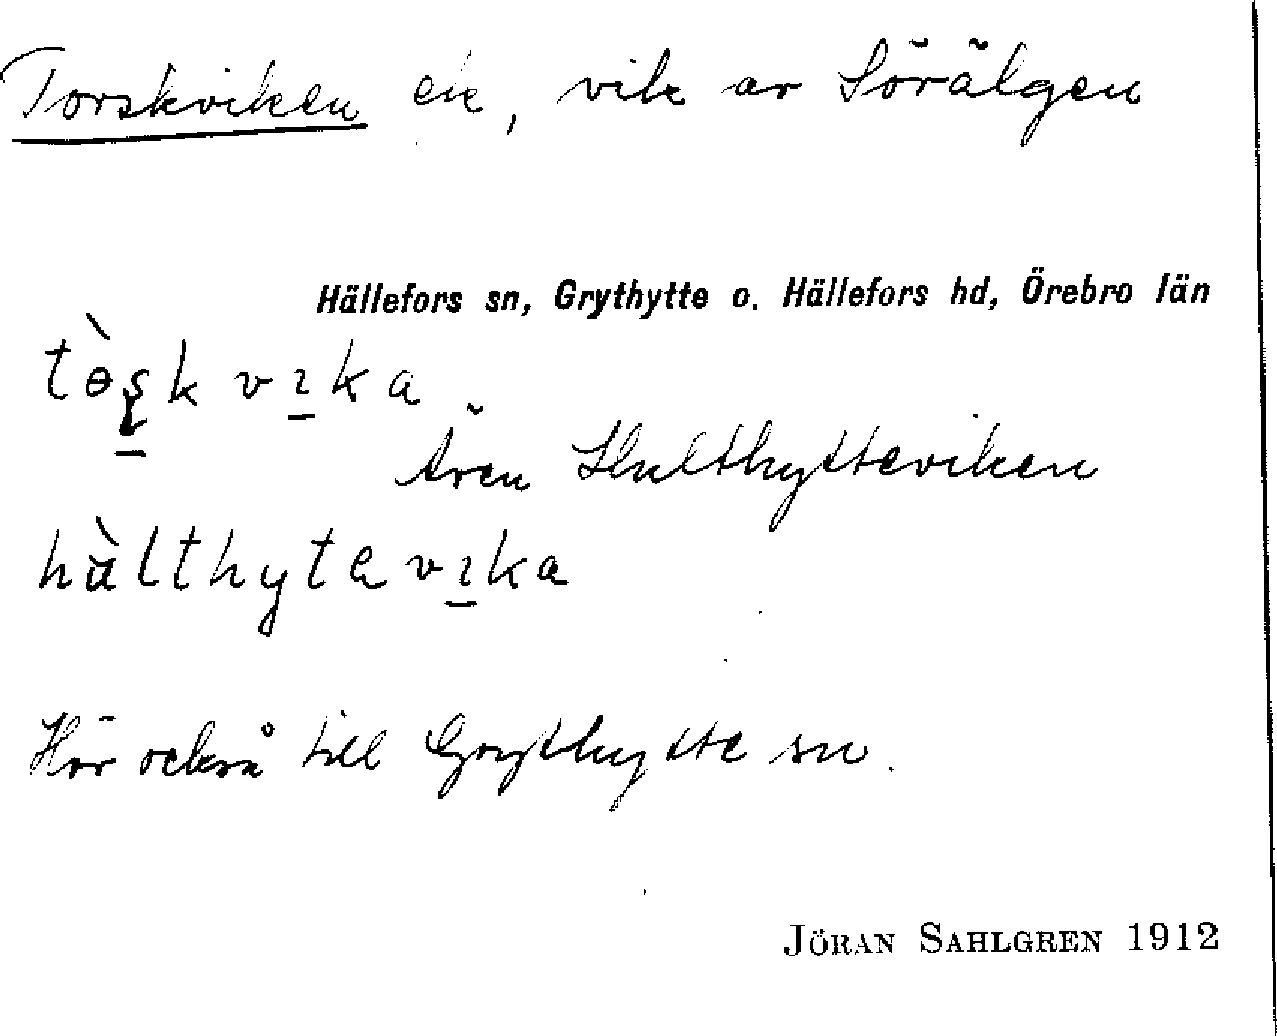 Torskviken ek, vik av Sörälgen
Hällefors sn, Grythytte o. Hällefors hd, Örebro län
tɵ̀s̠kvɪ̠ka
Även Hulthytteviken
hùlthytavɪ̠ka
Hör också till Grythytte sn.
JÖRAN SAHLGREN 1912